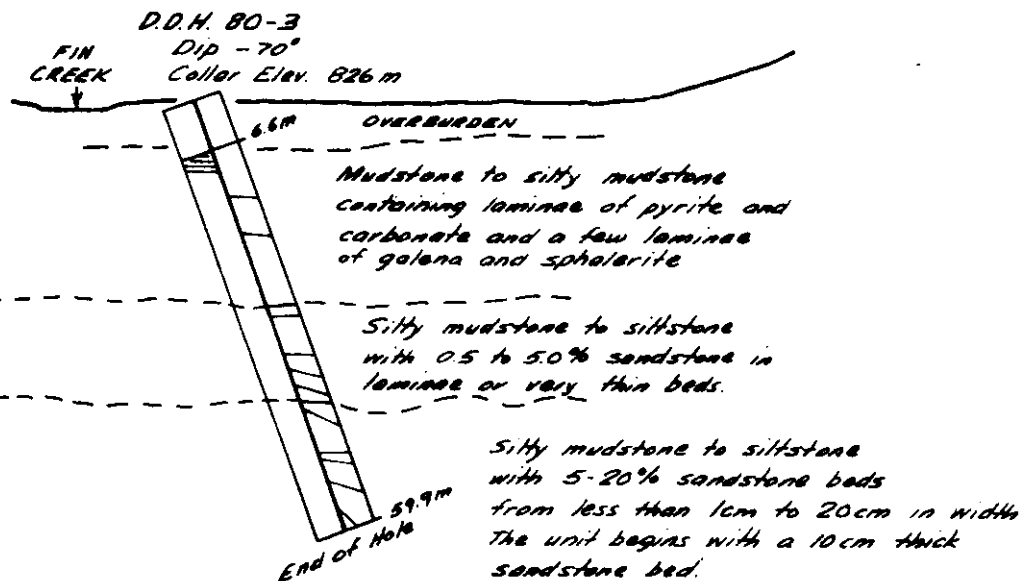 D.D.H. 80-3
Dip -70°
Collar Elev. 826m
FIN
CREEK
6.6m
OVERBURDEN
Mudstone to silty mudstone
containing laminae of pyrite and
carbonate and a few laminae
of galena and sphalerite
Silty mudstone to siltstone
with 0.5 to 5.0% sandstone in
laminae or very thin beds.
Silty mudstone to siltstone
with 5-20% sandstone beds
from less than 1cm to 20cm in width
The unit begins with a 10cm thick
sandstone bed.
59.9m
End of Hole